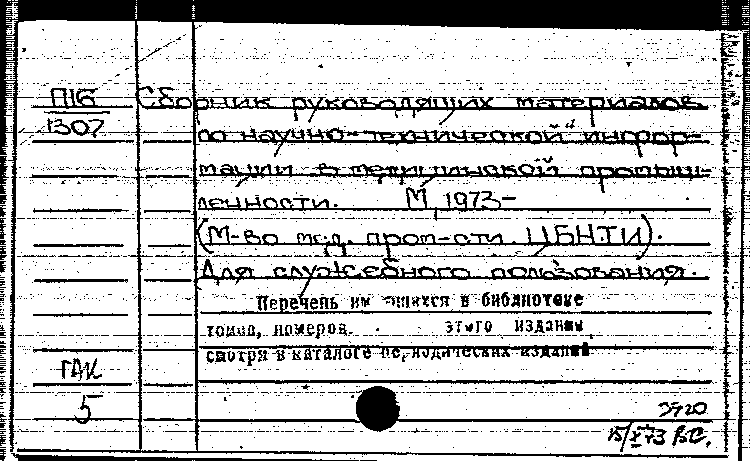 П16
1307
Сборник руководящих материалов
по научно-технической инфор-
мации в медицинской промыш-
ленности. М, 1973-
(М-во мед. пром-сти. ЦБНТИ).
Для служебного пользования.
Перечень имеющихся в библиотеке
томов, номеров этого издания
смотри в каталоге периодических изданий
ГАК
5
3920
15/X 73 ВС.